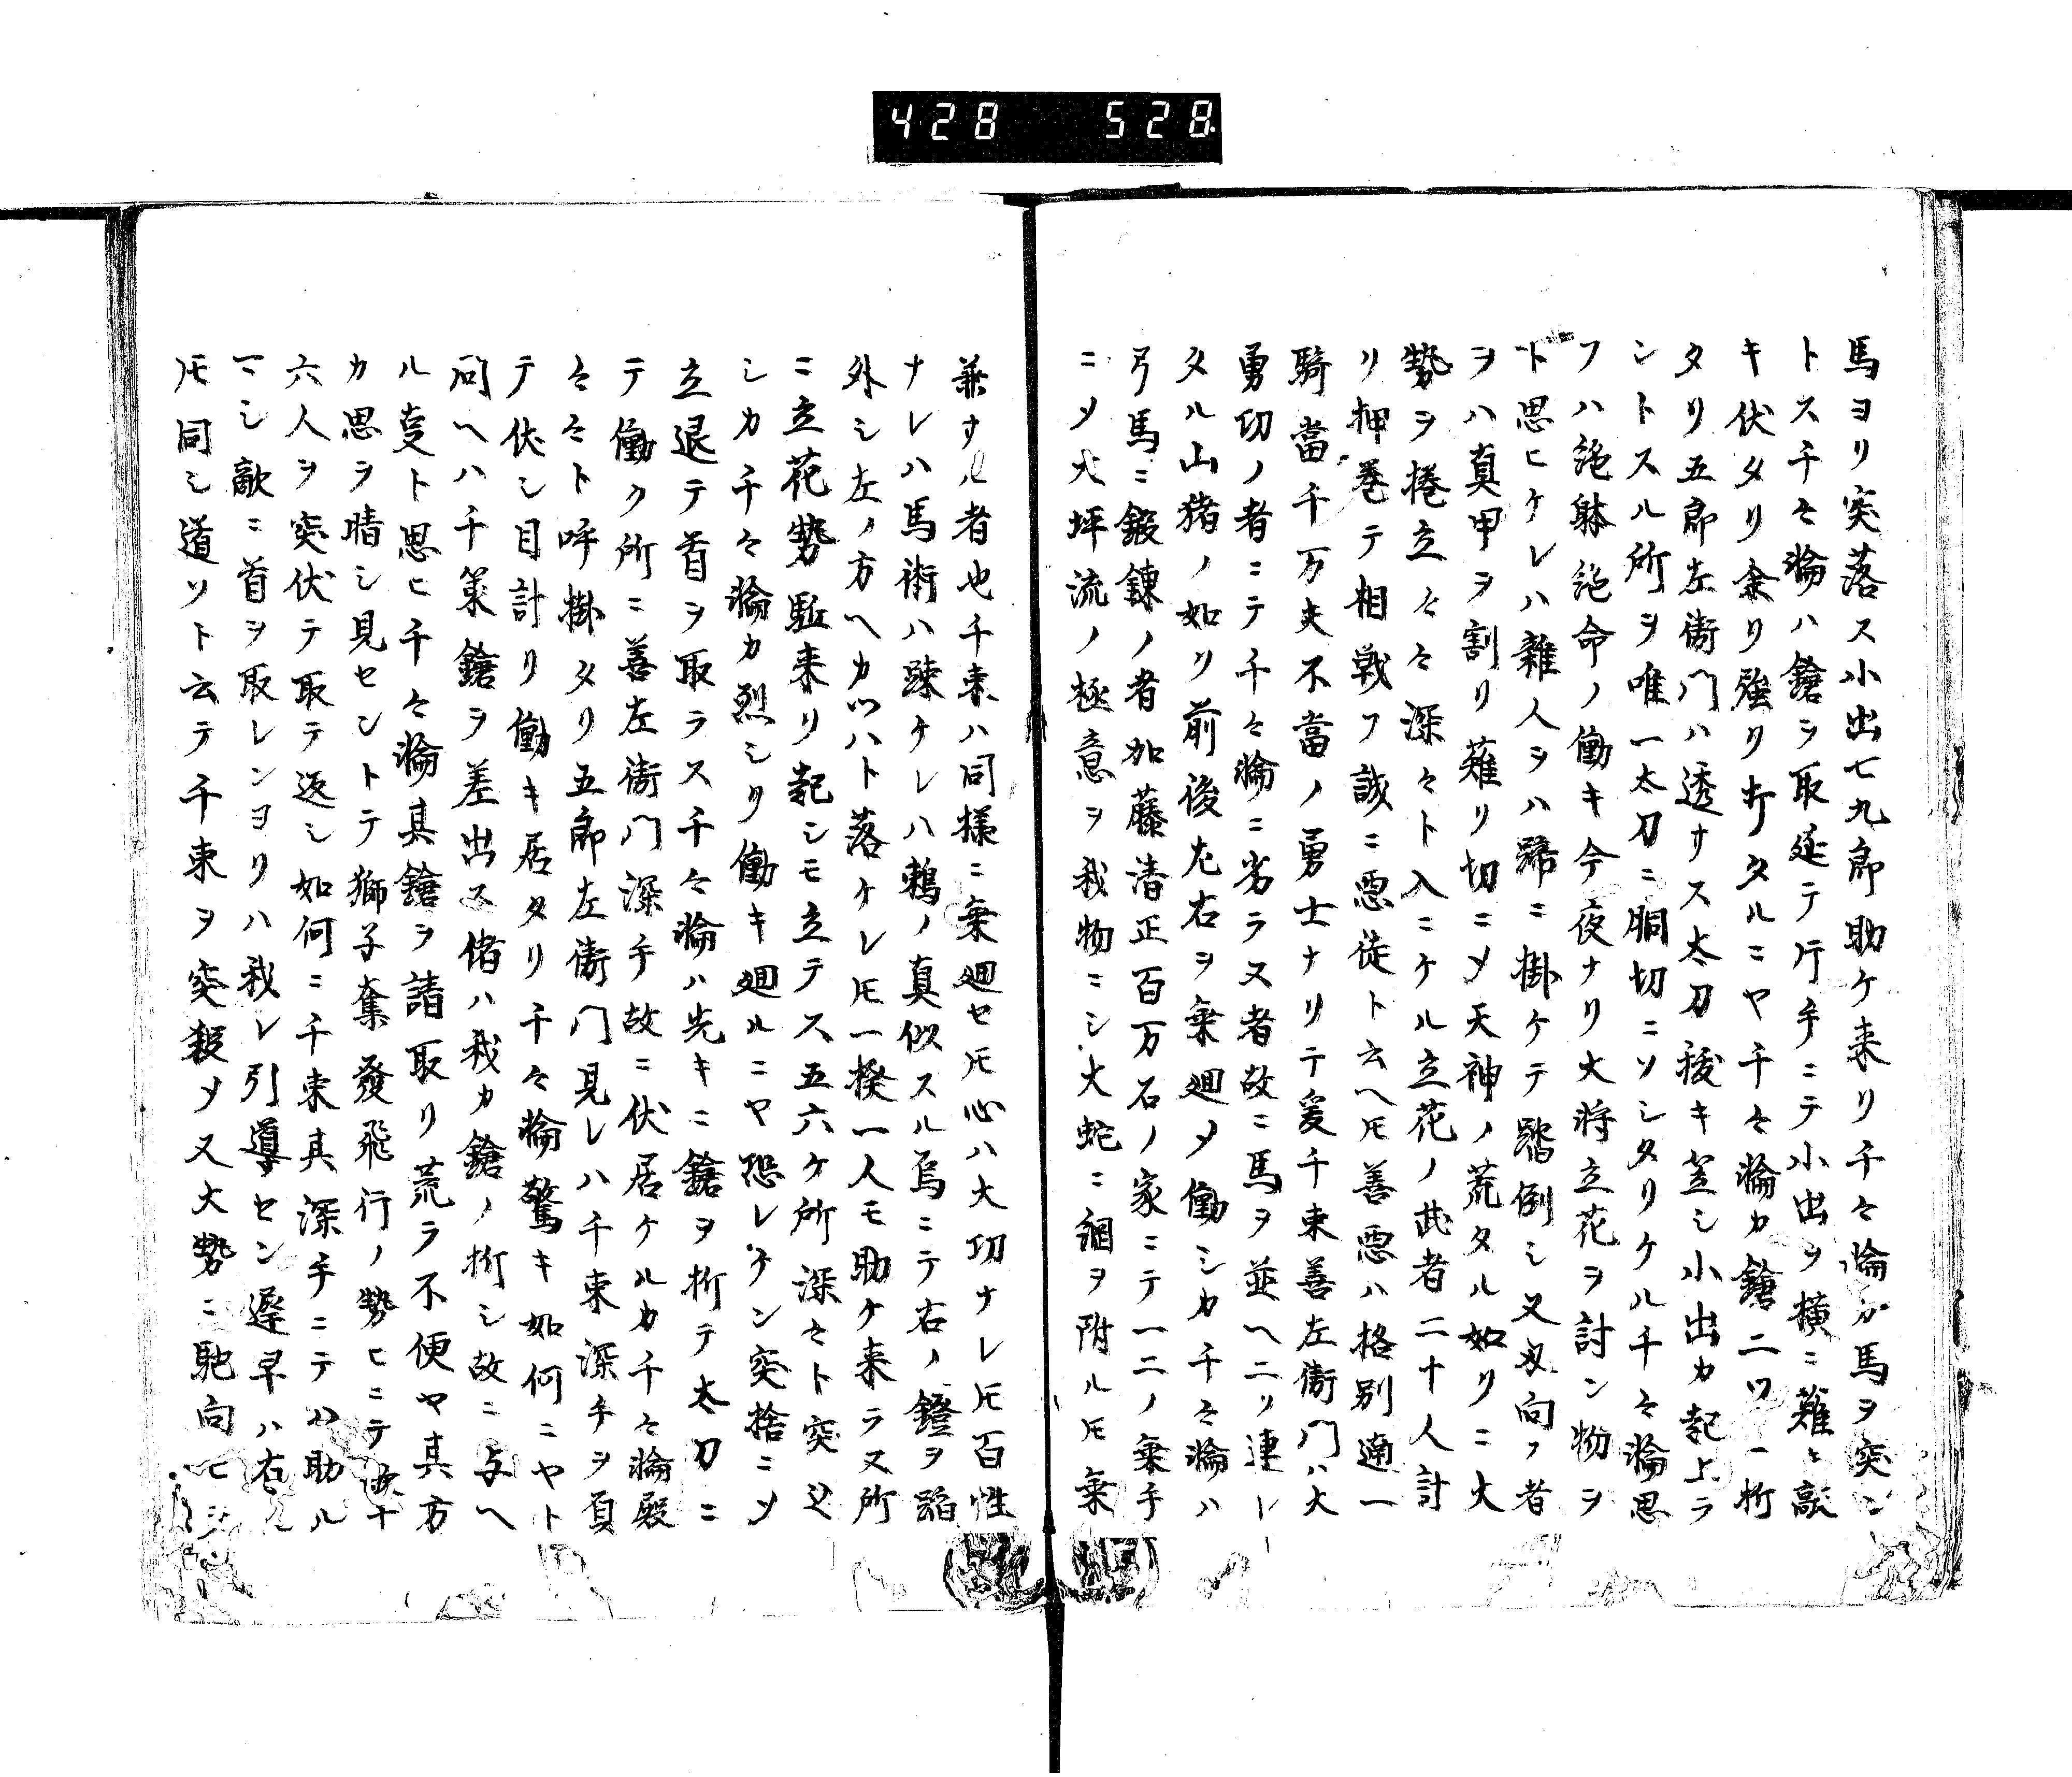 428 528
馬ヨリ突落ス小出七九郎助ケ来リ千々輪カ馬ヲ突ン
トス千々輪ハ鎗ヲ取延テ片手ニテ小出ヲ横ニ薙ニ敲
キ伏タリ余リ強リ打タルニヤ千々輪カ鎗二ツニ折
タリ五郎左衛門ハ透サス太刀抜キ翳シ小出カ起上ラ
ントスル所ヲ唯一太刀ニ胴切ニソシタリケル千々輪思
フハ絶躰絶命ノ働キ今夜ナリ大将立花ヲ討ン物ヲ
ト思ヒケレハ雑人ヲハ蹄ニ掛ケテ踏倒シ又刃向ノ者
ヲハ真甲ヲ割リ薙リ切ニメ天神ノ荒タル如リニ大
勢ヲ捲立々々深々ト入ニケル立花ノ武者二十人計
リ押巻テ相戦フ誠ニ悪徒ト云ヘ𪜈善悪ハ格別適一
騎當千万夫不當ノ勇士ナリテ爰千束善左衛門ハ大
勇功ノ者ニテ千々輪ニ劣ラヌ者故ニ馬ヲ並ヘ二リ連レ
タル山猪ノ如リ前後左右ヲ乗廻メ働シカ千々輪ハ
弓馬ニ鍛錬ノ者加藤清正百万石ノ家ニテ一二ノ乗手
ニメ大坪流ノ極意ヲ我物ニシ大蛇ニ翅ヲ附ル𪜈乗
兼サル者也千束ハ同様ニ乗廻セ𪜈心ハ大切ナレ𪜈百性
ナレハ馬術ハ疎ケレハ鵜ノ真似スル烏ニテ右ノ鐙ヲ蹈
外シ左ノ方ヘカツハト落ケレ𪜈一揆一人モ助ケ来ラス所
ニ立花勢駈来リ起シモ立テス五六ケ所深々ト突込
シカ千々輪カ烈シリ働キ廻ルニヤ恐レケン突捨ニメ
立退テ首ヲ取ラス千々輪ハ先キニ鎗ヲ折テ太刀ニ
テ働ク所ニ善左衛門深手故ニ伏居ケルカ千々輪殿
々々ト呼掛タリ五郎左衛門見レハ千束深手ヲ負
テ伏シ目計リ働キ居タリ千々輪驚キ如何ニヤト
問ヘハ千束鎗ヲ差出ス偖ハ我カ鎗ノ折シ故ニ与ヘ
ル㕝ト思ヒ千々輪其鎗ヲ請取リ荒ラ不便ヤ其方
カ思ヲ晴シ見セントテ獅子奮發飛行ノ勢ヒニテ敵十
六人ヲ突伏テ取テ返シ如何ニ千束其深手ニテハ助ル
マシ敵ニ首ヲ取レンヨリハ我レ引導セン遅早ハ有
𪜈同シ道ソト云テ千束ヲ突殺メ又大勢ニ馳向ヒ